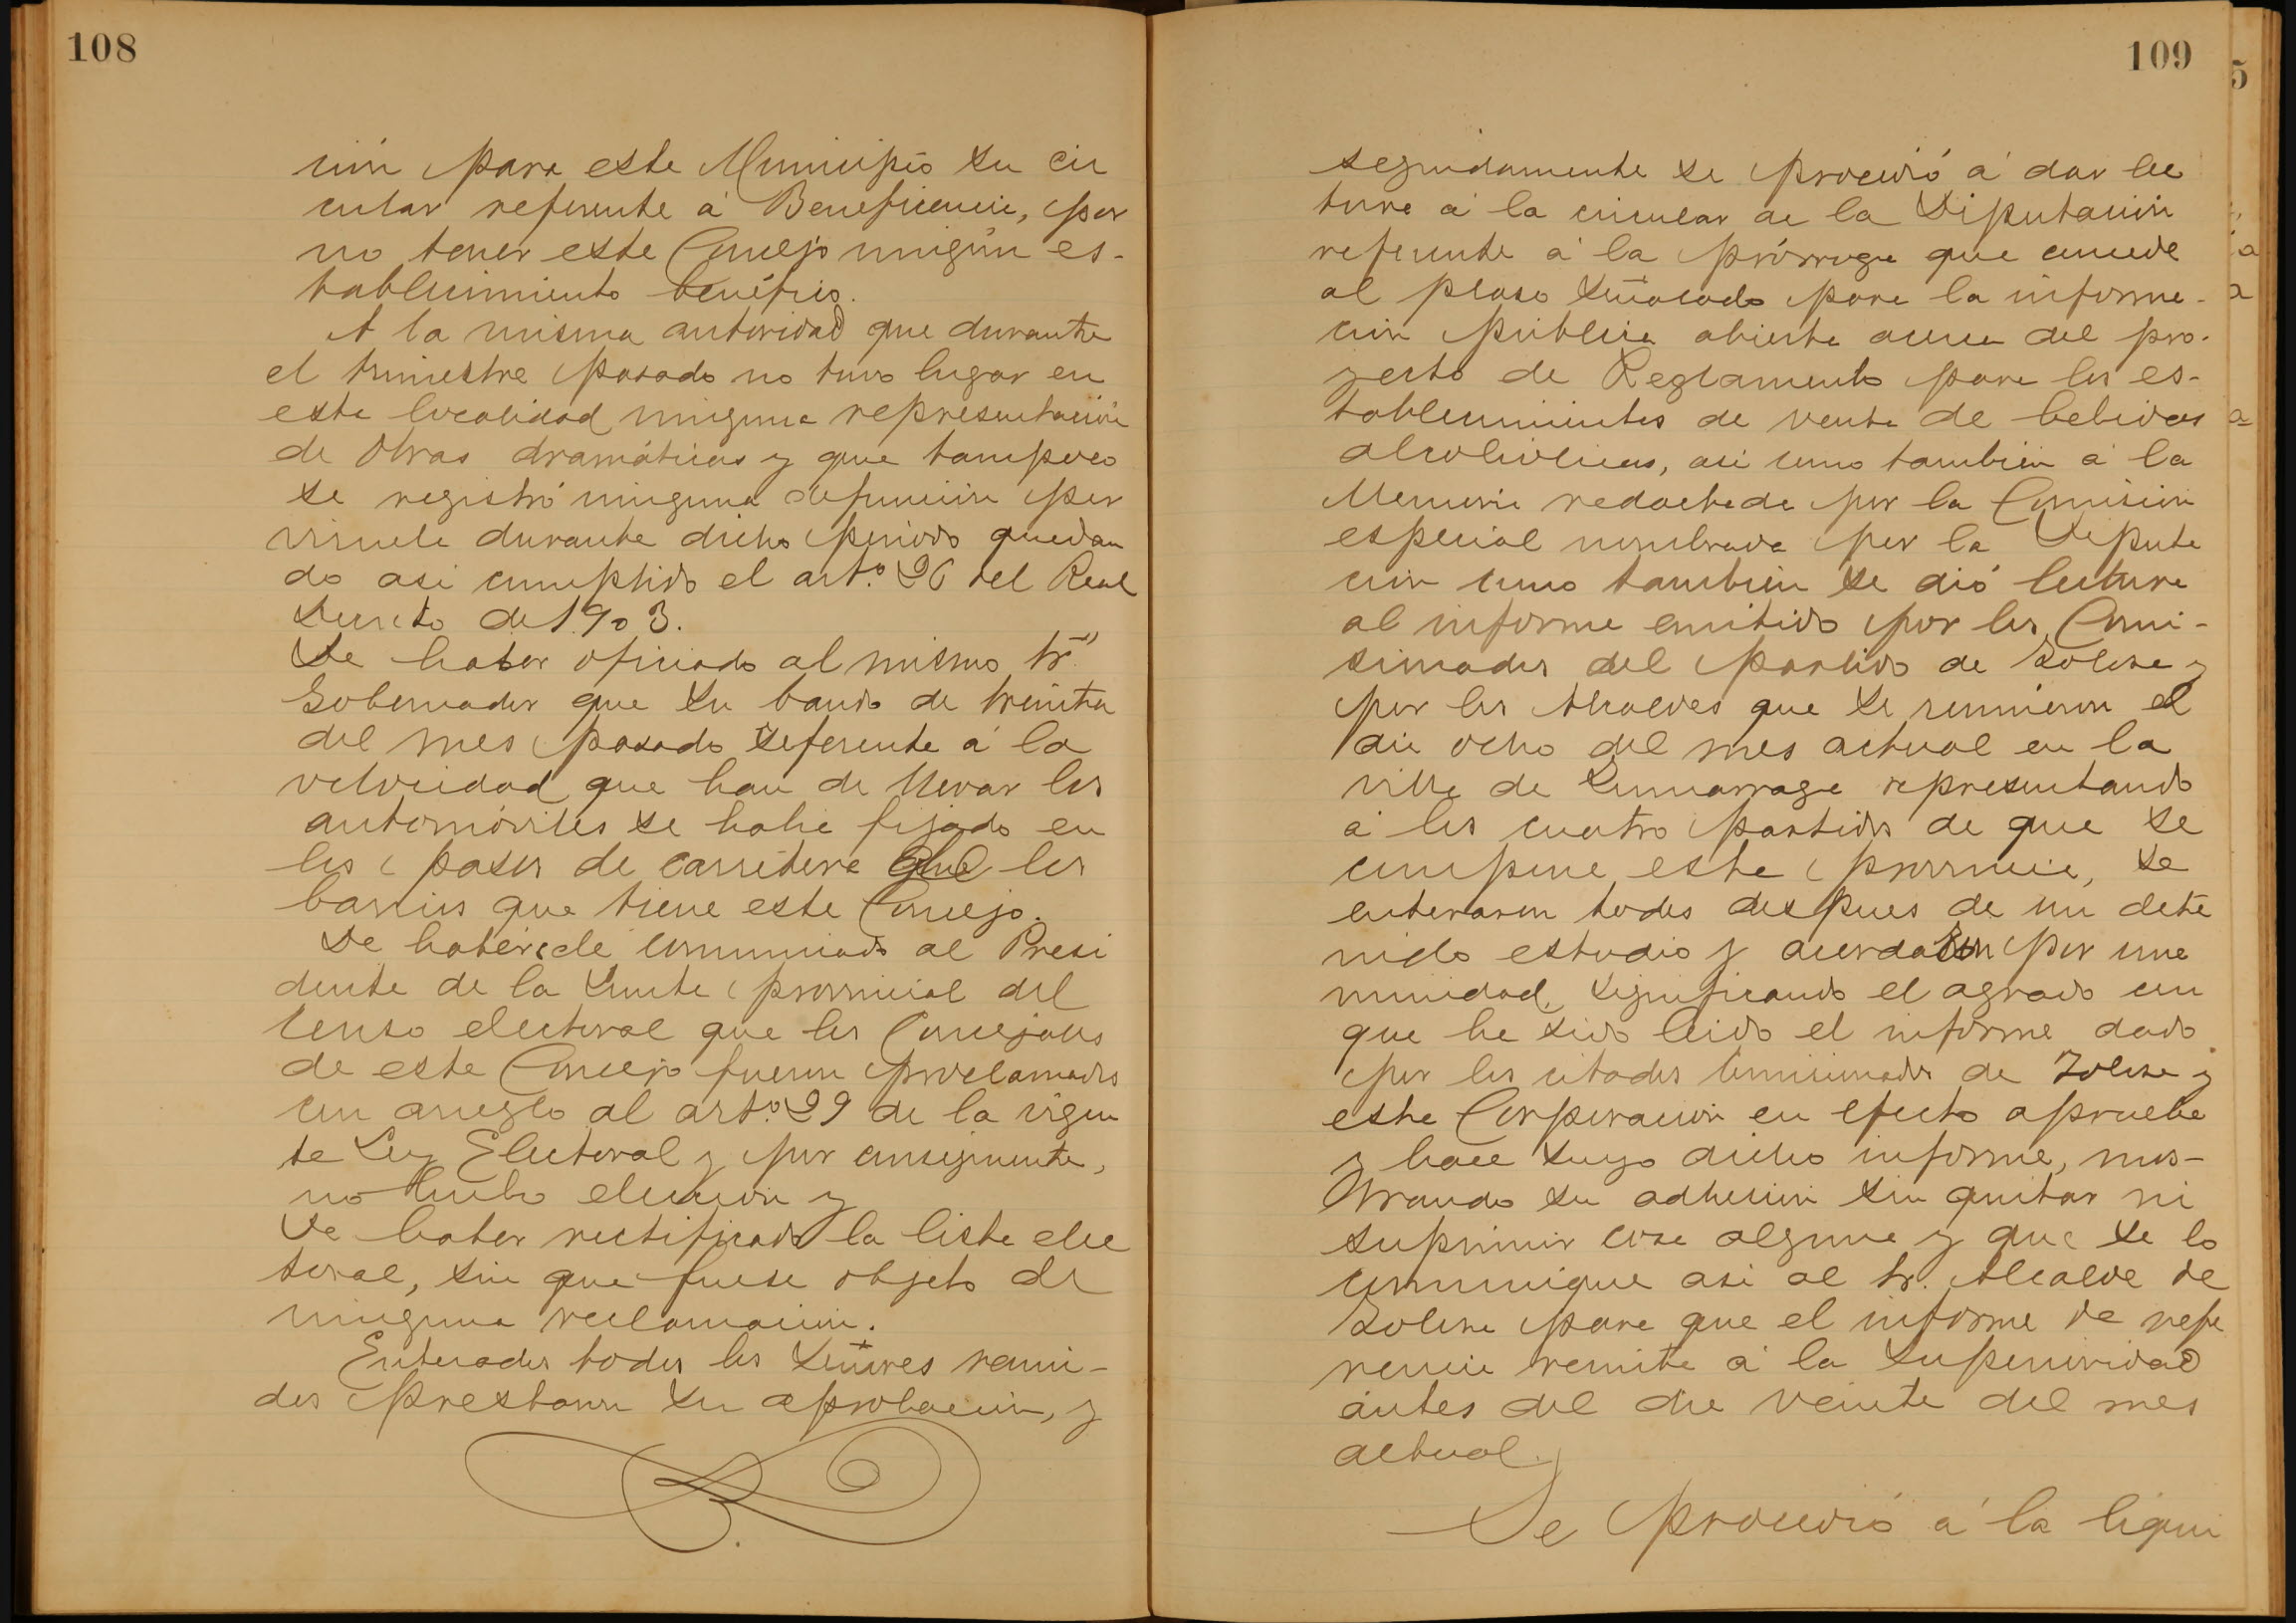 108
ción para este Municipio su cir
cular referente á Beneficencia, por
no tener este Concejo ningún es-
tablecimiento benéfico.
A la misma autoridad que durante
el trimestre pasado no tuvo lugar en
esta localidad ninguna representación
de obras dramáticas y que tampoco
se registró ninguna defunción por
viruela durante dicho periodo quedan
do asi cumplido el artº. 26 del Real
Decreto de 1903.
De haber oficiado al mismo Sr.
Gobernador que su bando de treinta
del mes pasado referente á la
velocidad que han de llevar los
automóviles se habia fijado en
los pasos de carretera que los
barrios que tiene este Concejo.
De habérsele comunicado al Presi
dente de la Junta provincial del
Censo electoral que los Concejales
de este Concejo fueron proclamados
con arreglo al artº. 29 de la vigen
te Ley Electoral y por consiguiente,
no hubo elección y
De haber rectificado la lista elec
toral, sin que fuese objeto de
ninguna reclamación.
Enterados todos los Señores reuni-
dos prestaron su aprobación, y
109
seguidamente se procedió á dar lec
tura á la circular de la Diputación
referente á la prórroga que concede
al plazo señalado para la informa-
ción pública abierta acerca del pro-
yecto de Reglamento para los es-
tablecimientos de venta de bebidas
alcohólicas, asi como también á la
Memoria redactada por la Comisión
especial nombrada por la Diputa
ción como también se dió lectura
al informe emitido por los Comi-
sionados del Partido de Tolosa y
por los Alcaldes que se reunieron el
dia ocho del mes actual en la
villa de Zumarraga representando
á los cuatro partidos de que se
compone esta provincia, se
enteraron todos despues de un dete
nido estudio y acordaron por una
nimidad, significando el agrado con
que ha sido leido el informe dado
por los citados Comisionados de Tolosa y
esta Corporación en efecto aprueba
y hace suyo dicho informe, mos-
trando su adhesión sin quitar ni
suprimir cosa alguna y que se lo
comunique asi al Sr. Alcalde de
Tolosa para que el informe de refe
rencia remita á la Superioridad
ántes del dia veinte del mes
actual.
Se procedió á la liqui